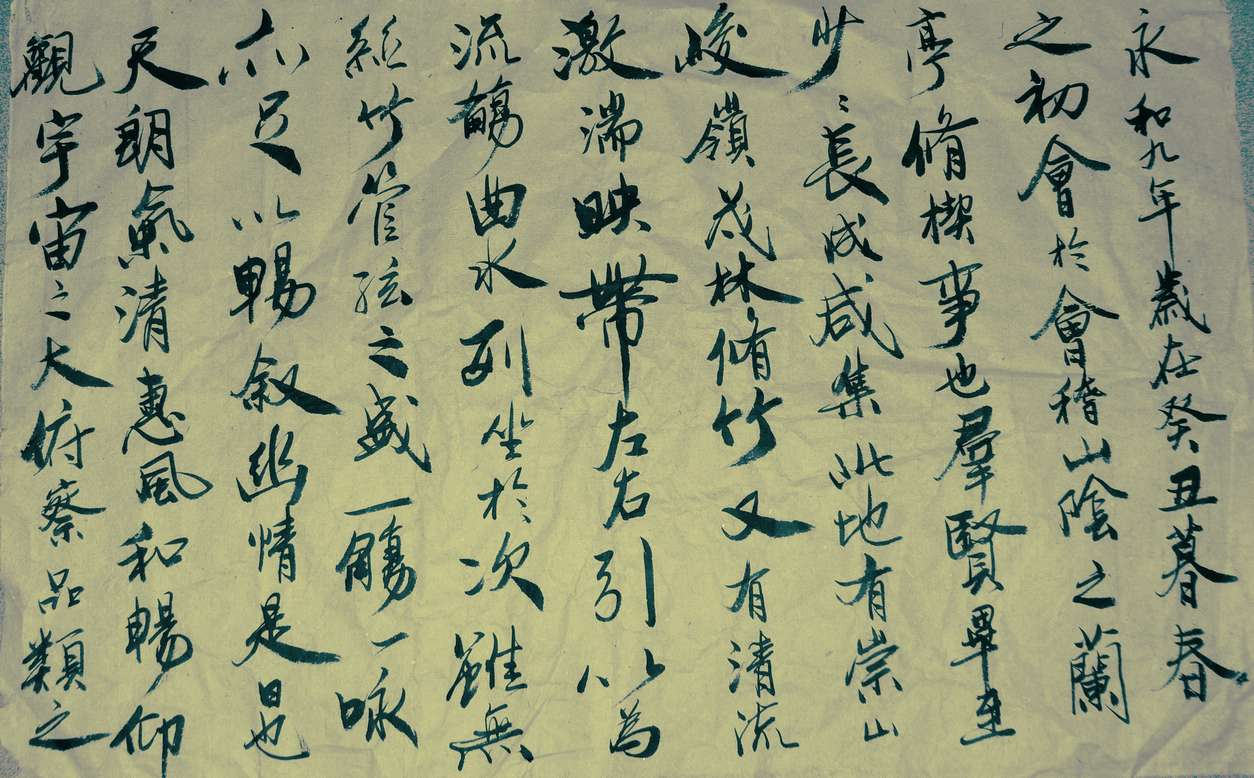 永和九年歲在癸丑暮春
之初會於會稽山陰之蘭
亭脩禊事也羣賢畢至
少〻長成咸集此地有崇山
峻嶺茂林脩竹又有清流
激湍映帶左右引以為
流觴曲水列坐於次雖無
絲竹管弦之盛一觴一咏
亦足以暢叙幽情是日也
天朗氣清惠風和暢仰
觀宇宙之大俯察品類之